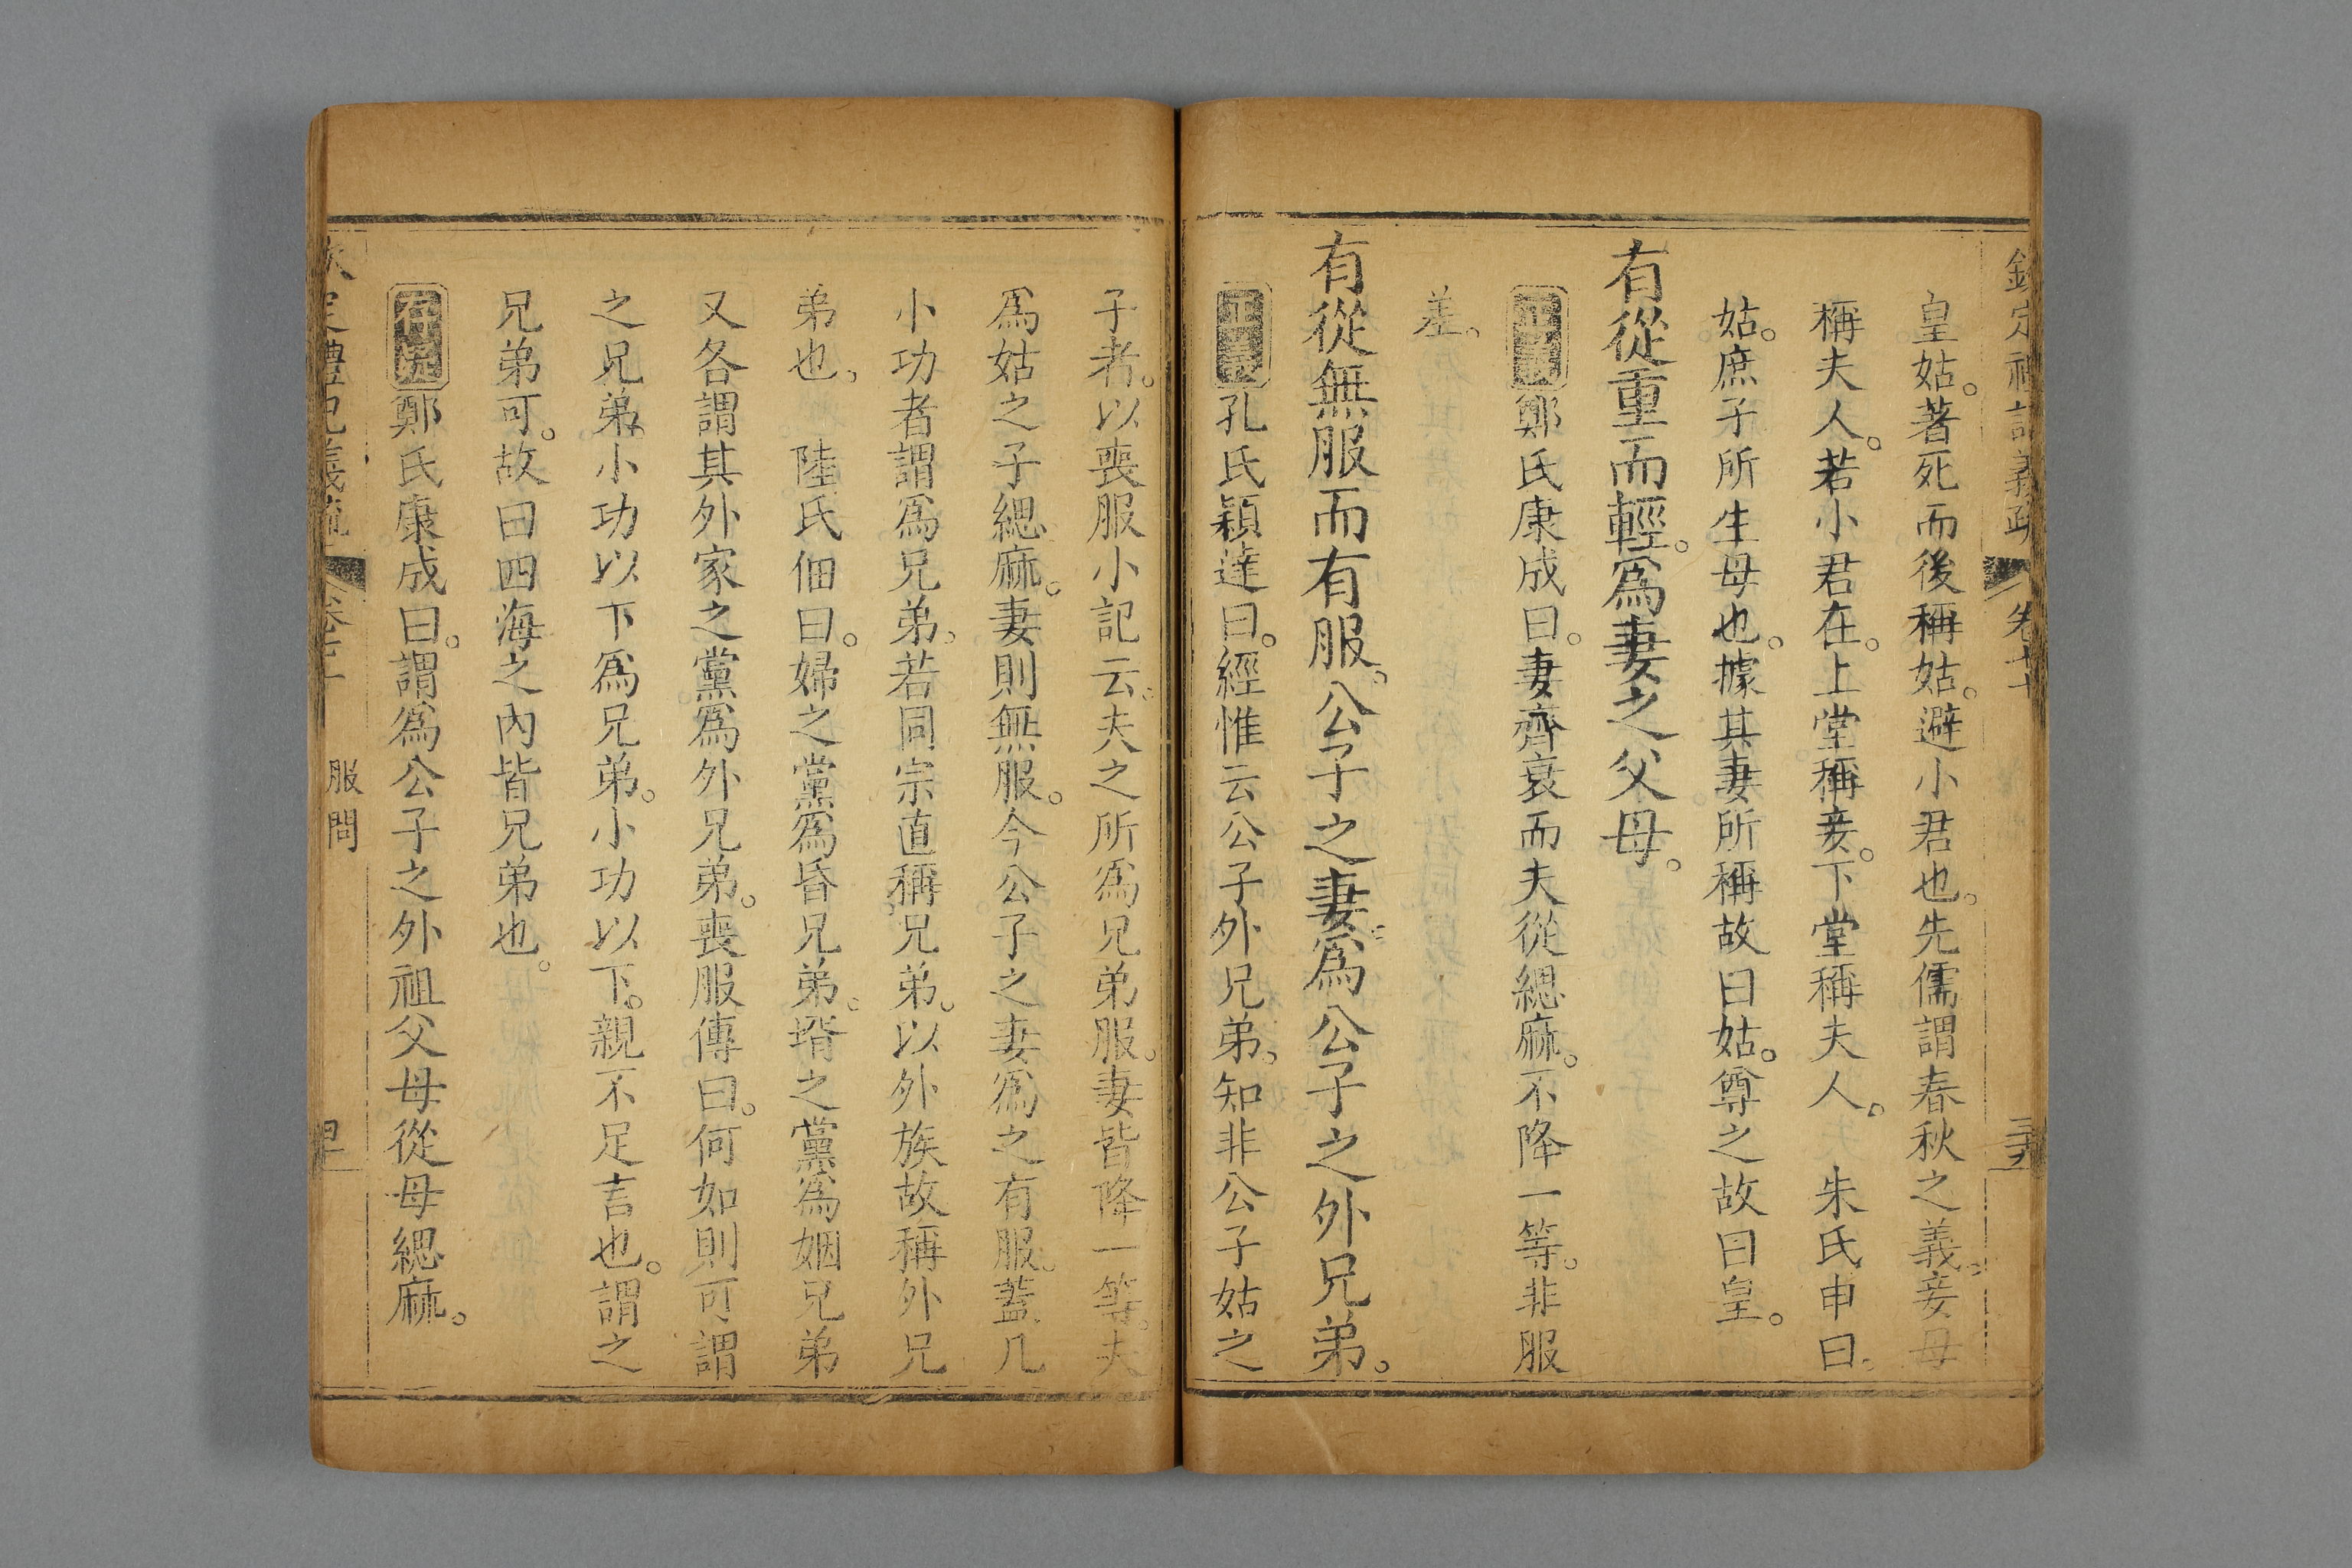 皇姑。著死而後稱姑。避小君也。先儒謂春秋之義。妾母
稱夫人。若小君在。上堂稱妾。下堂稱夫人。 朱氏申曰。
姑。庶子所生母也。據其妻所稱故曰姑。尊之故曰皇。
有從重而輕。爲妻之父母。
正義鄭氏康成曰。妻齊衰而夫從緦麻。不降一等。非服
差。
有從無服而有服。公子之妻。爲公子之外兄弟。
正義孔氏穎達曰。經惟云公子外兄弟。知非公子姑之
子者。以喪服小記云。夫之所爲兄弟服。妻皆降一等。夫
爲姑之子緦麻。妻則無服。今公子之妻爲之有服。蓋凡
小功者謂爲兄弟。若同宗直稱兄弟。以外族故稱外兄
弟也。 陸氏佃曰。婦之黨爲昏兄弟。壻之黨爲姻兄弟
又各謂其外家之黨爲外兄弟。喪服傳曰。何如則可謂
之兄弟。小功以下爲兄弟。小功以下。親不足言也。謂之
兄弟可。故曰四海之內皆兄弟也。
存異鄭氏康成曰。謂爲公子之外祖父母從母緦麻。
服問